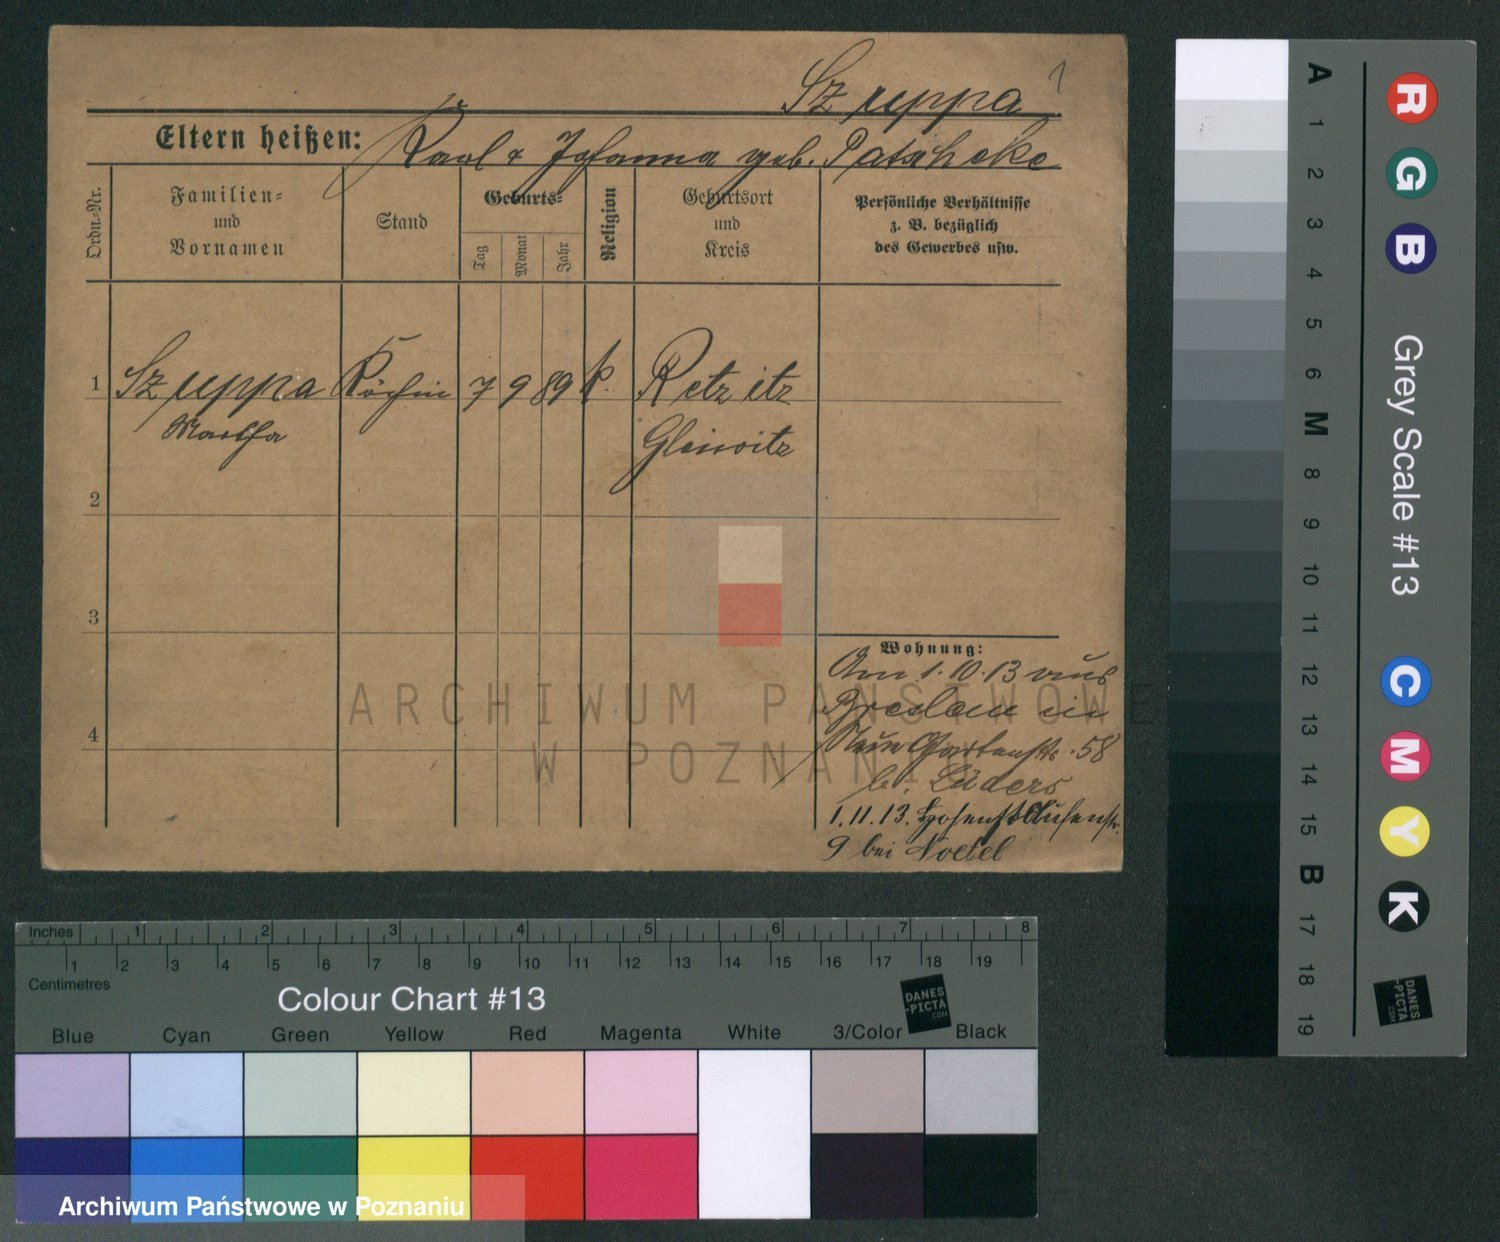 Szuppa
Eltern heißen: Karl & Johanna geb. Patscheke
Ordn.=Nr.
Familien=
und
Vornamen
Stand
Geburts=
Tag
Monat
Jahr
Religion
Geburtsort
und
Kreis
Persönliche Verhältnisse
z. B. bezüglich
des Gewerbes usw.
1 Szuppa Köchin 7 9 89 k. Retzitz
Martha Gleiwitz
2
3
4
Wohnung:
Am 1.10.13 aus
Breslau in
Neue Gartenstr. 58
b. Lüders
1.11.13. Hohenstaufenstr.
9 bei Noetel
ARCHIWUM PAŃSTWOWE
W POZNANIU
Inches 1 2 3 4 5 6 7 8
1 2 3 4 5 6 7 8 9 10 11 12 13 14 15 16 17 18 19
Centimetres
Colour Chart #13
DANES
-PICTA
.COM
Blue Cyan Green Yellow Red Magenta White 3/Color Black
Archiwum Państwowe w Poznaniu
A 1 2 3 4 5 6 M 8 9 10 11 12 13 14 15 B 17 18 19
R G B Grey Scale #13 C M Y K
DANES
-PICTA
.COM